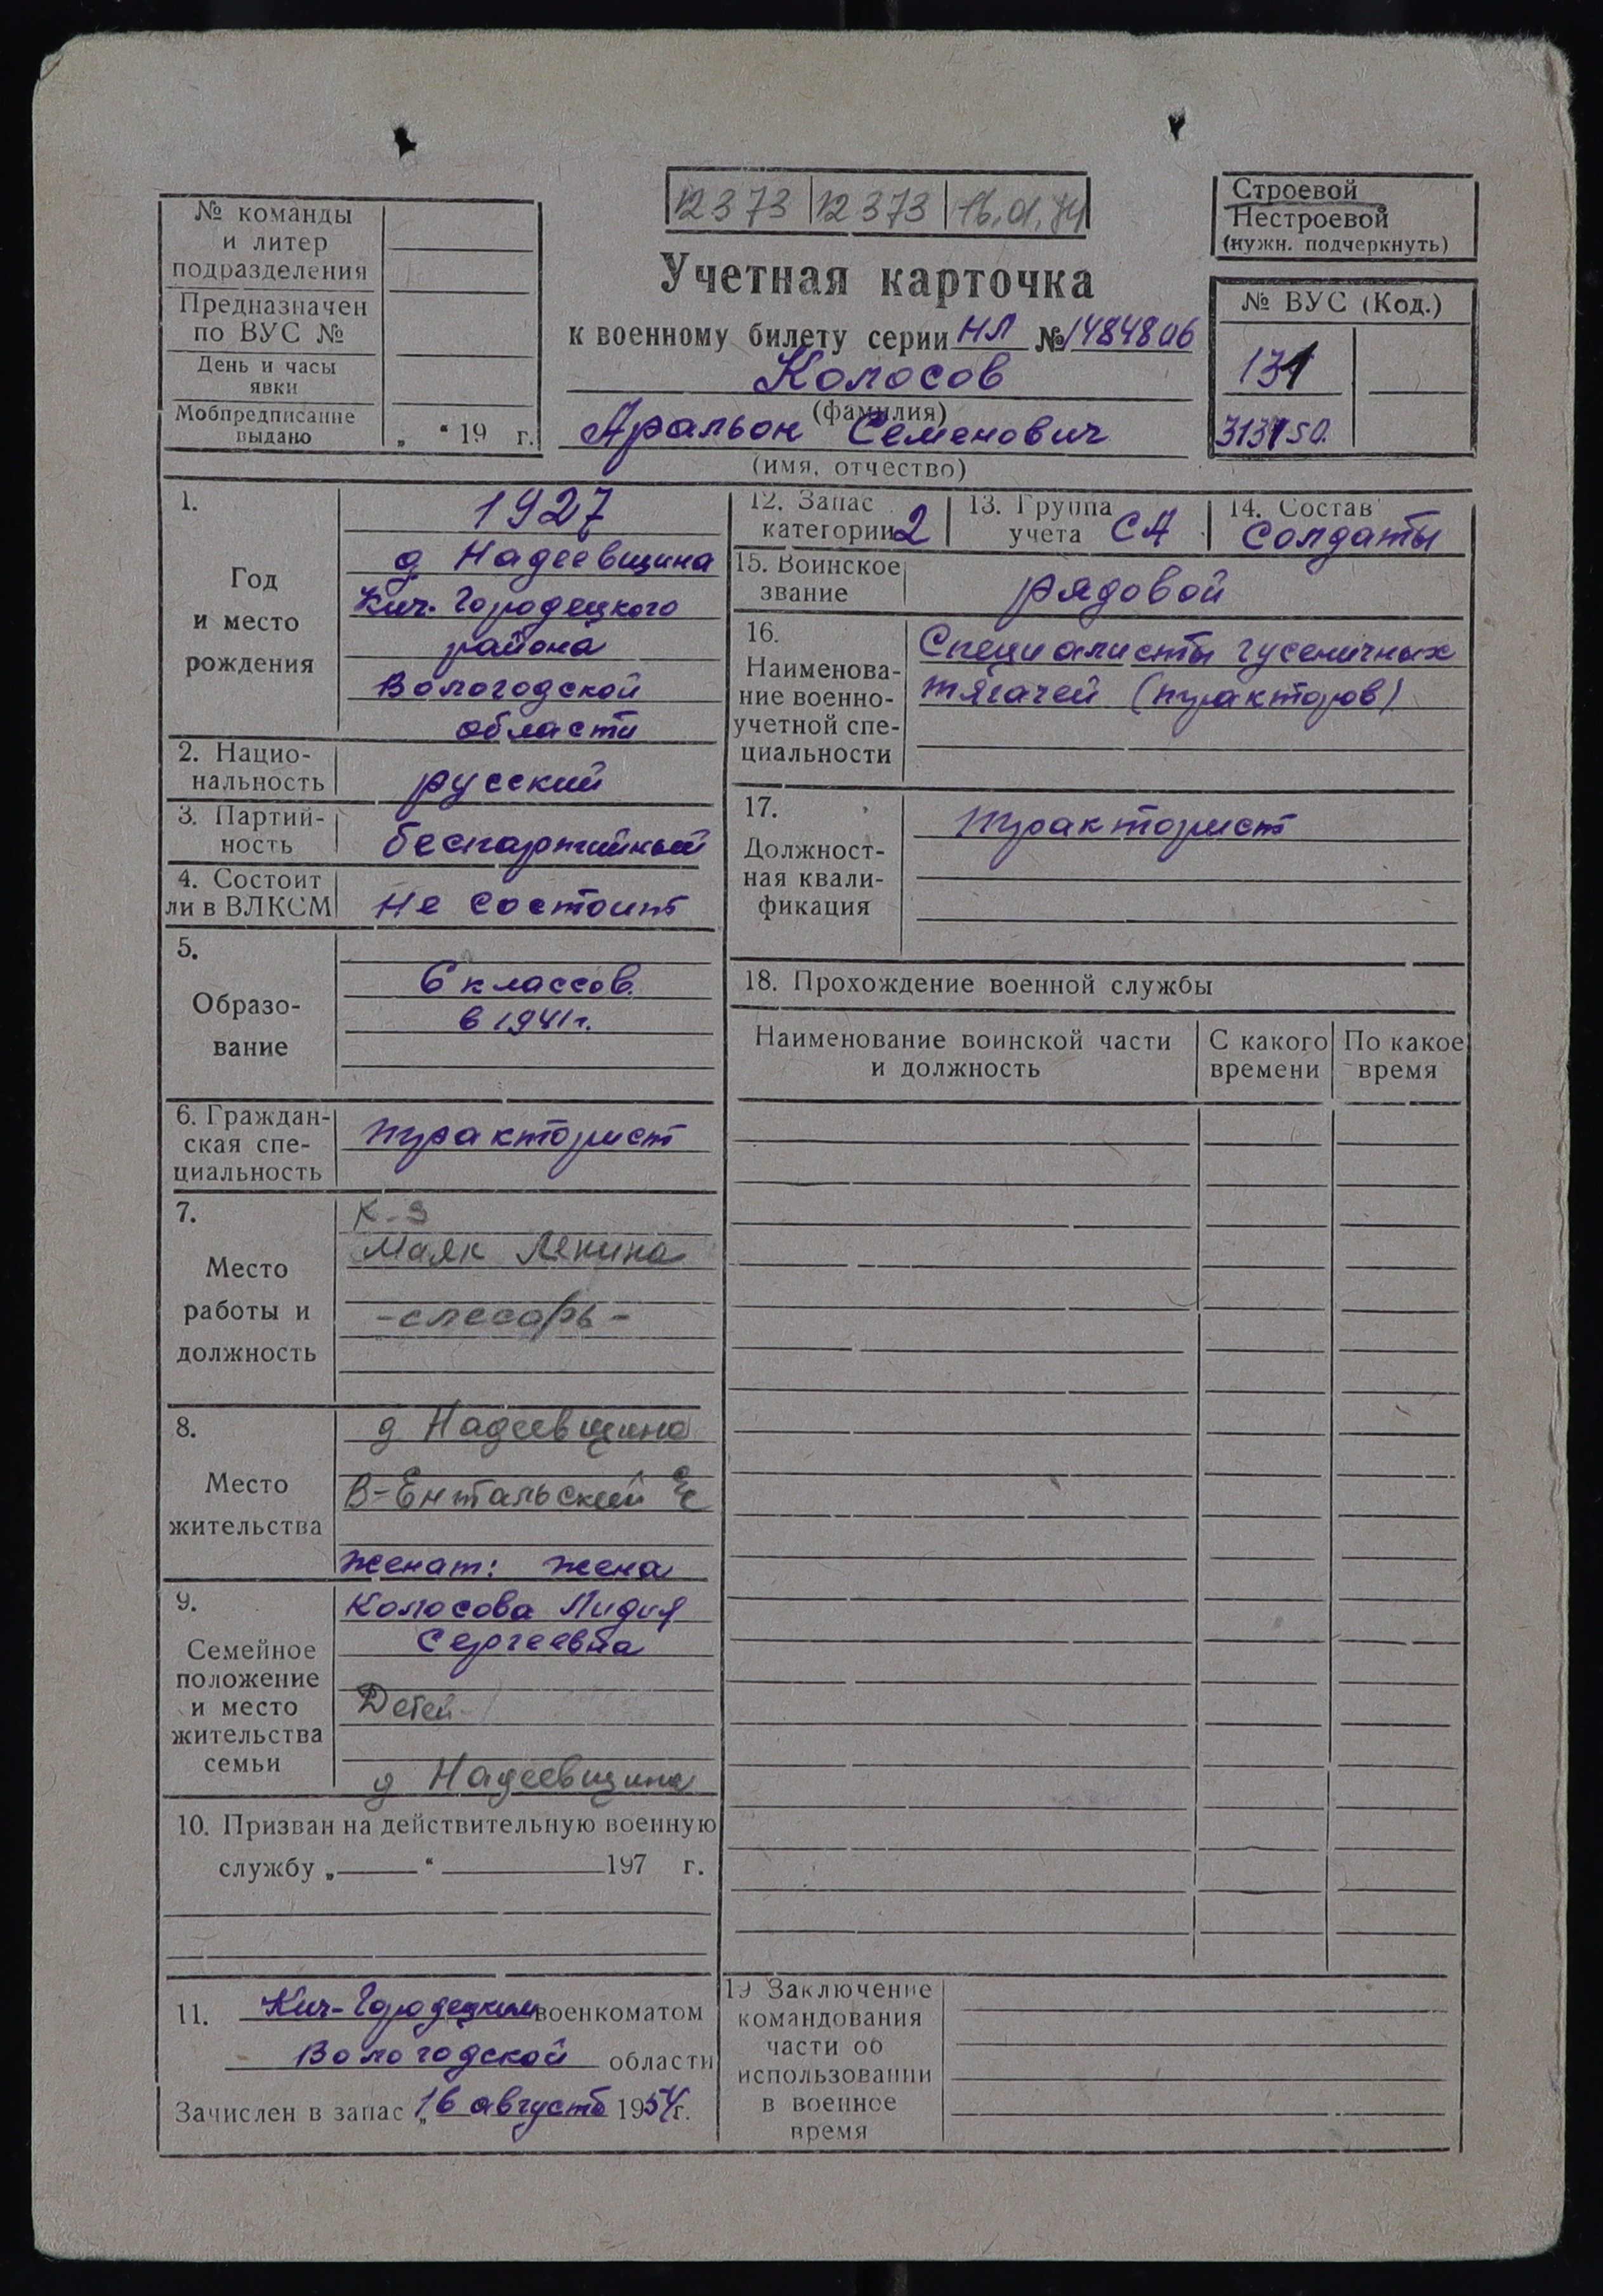 12373 12373 16.01.84
Строевой
Нестроевой
(нужн. подчеркнуть)
№ команды
и литер
подразделения
Предназначен
по ВУС №
День и часы
явки
Мобпредписание
выдано
„ “ 19 г.
Учетная карточка
к военному билету серии НЛ № 1484806
Колосов
(фамилия)
Аральон Семенович
(имя, отчество)
№ ВУС (Код.)
131
313150.
1.
Год
и место
рождения
1927
д Надеевщина
Кич. Городецкого
района
Вологодской
области
2. Нацио-
нальность
русский
3. Партий-
ность
беспартийный
4. Состоит
ли в ВЛКСМ
не состоит
5.
Образо-
вание
6 классов.
в 1941г.
6. Граждан-
ская спе-
циальность
тракторист
7.
Место
работы и
должность
к-з
Маяк Ленина
-слесарь-
8.
Место
жительства
д Надеевщина
В-Ентальский с/с
женат: жена
9.
Семейное
положение
и место
жительства
семьи
Колосова Лидия
Сергеевна
Детей-
д Надеевщина
10. Призван на действительную военную
службу „ “ 197 г.
11. Кич-Городецким военкоматом
Вологодской области
Зачислен в запас „16 августа 1954г.
12. Запас
категории 2
13. Группа
учета СА
14. Состав
солдаты
15. Воинское
звание
рядовой
16.
Наименова-
ние военно-
учетной спе-
циальности
Специалисты гусеничных
тягачей (тракторов)
17.
Должност-
ная квали-
фикация
тракторист
18. Прохождение военной службы
Наименование воинской части
и должность
С какого
времени
По какое
время
19 Заключение
командования
части об
использовании
в военное
время